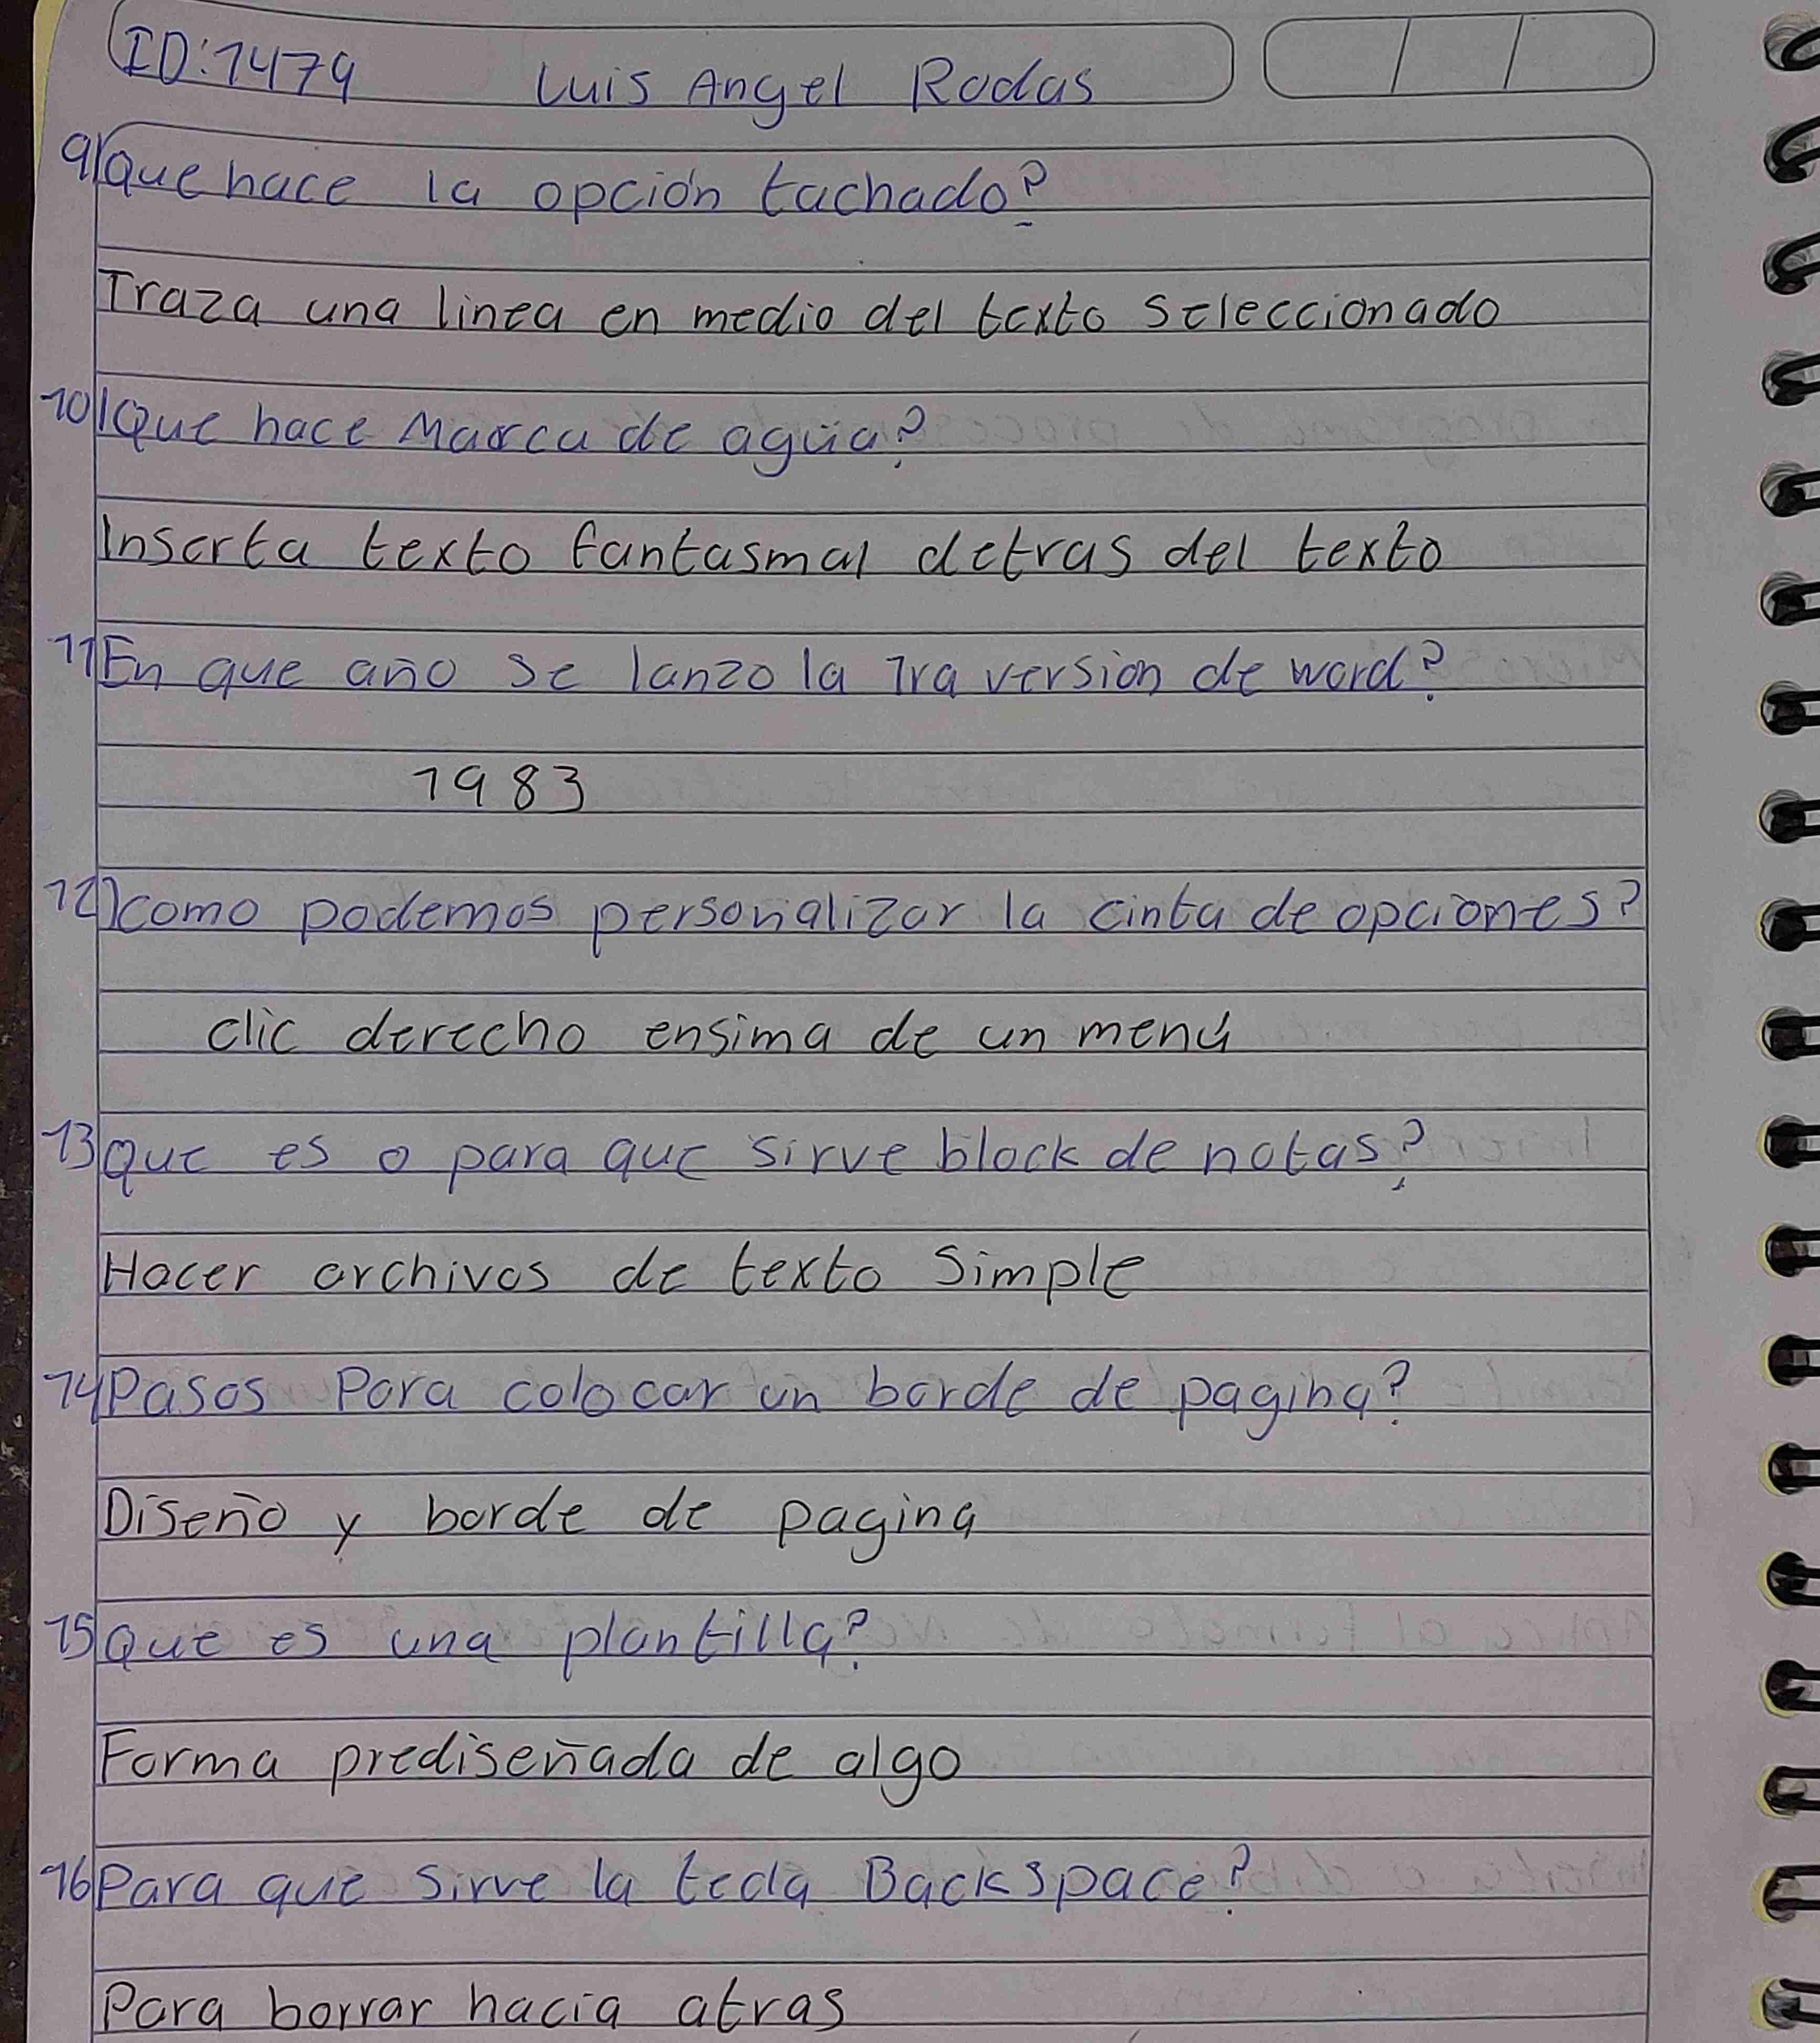 ID:1479 Luis Angel Rodas
9) Que hace la opción tachado?
Traza una linea en medio del texto seleccionado
10) Que hace Marca de agua?
Inserta texto fantasmal detras del texto
11) En que año se lanzo la 1ra version de word?
1983
12) como podemos personalizar la cinta de opciones?
clic derecho ensima de un menú
13) que es o para que sirve block de notas?
Hacer archivos de texto simple
14) Pasos Para colocar un borde de pagina?
Diseño y borde de pagina
15) Que es una plantilla?
Forma prediseñada de algo
16) Para que sirve la tecla Backspace?
Para borrar hacia atras